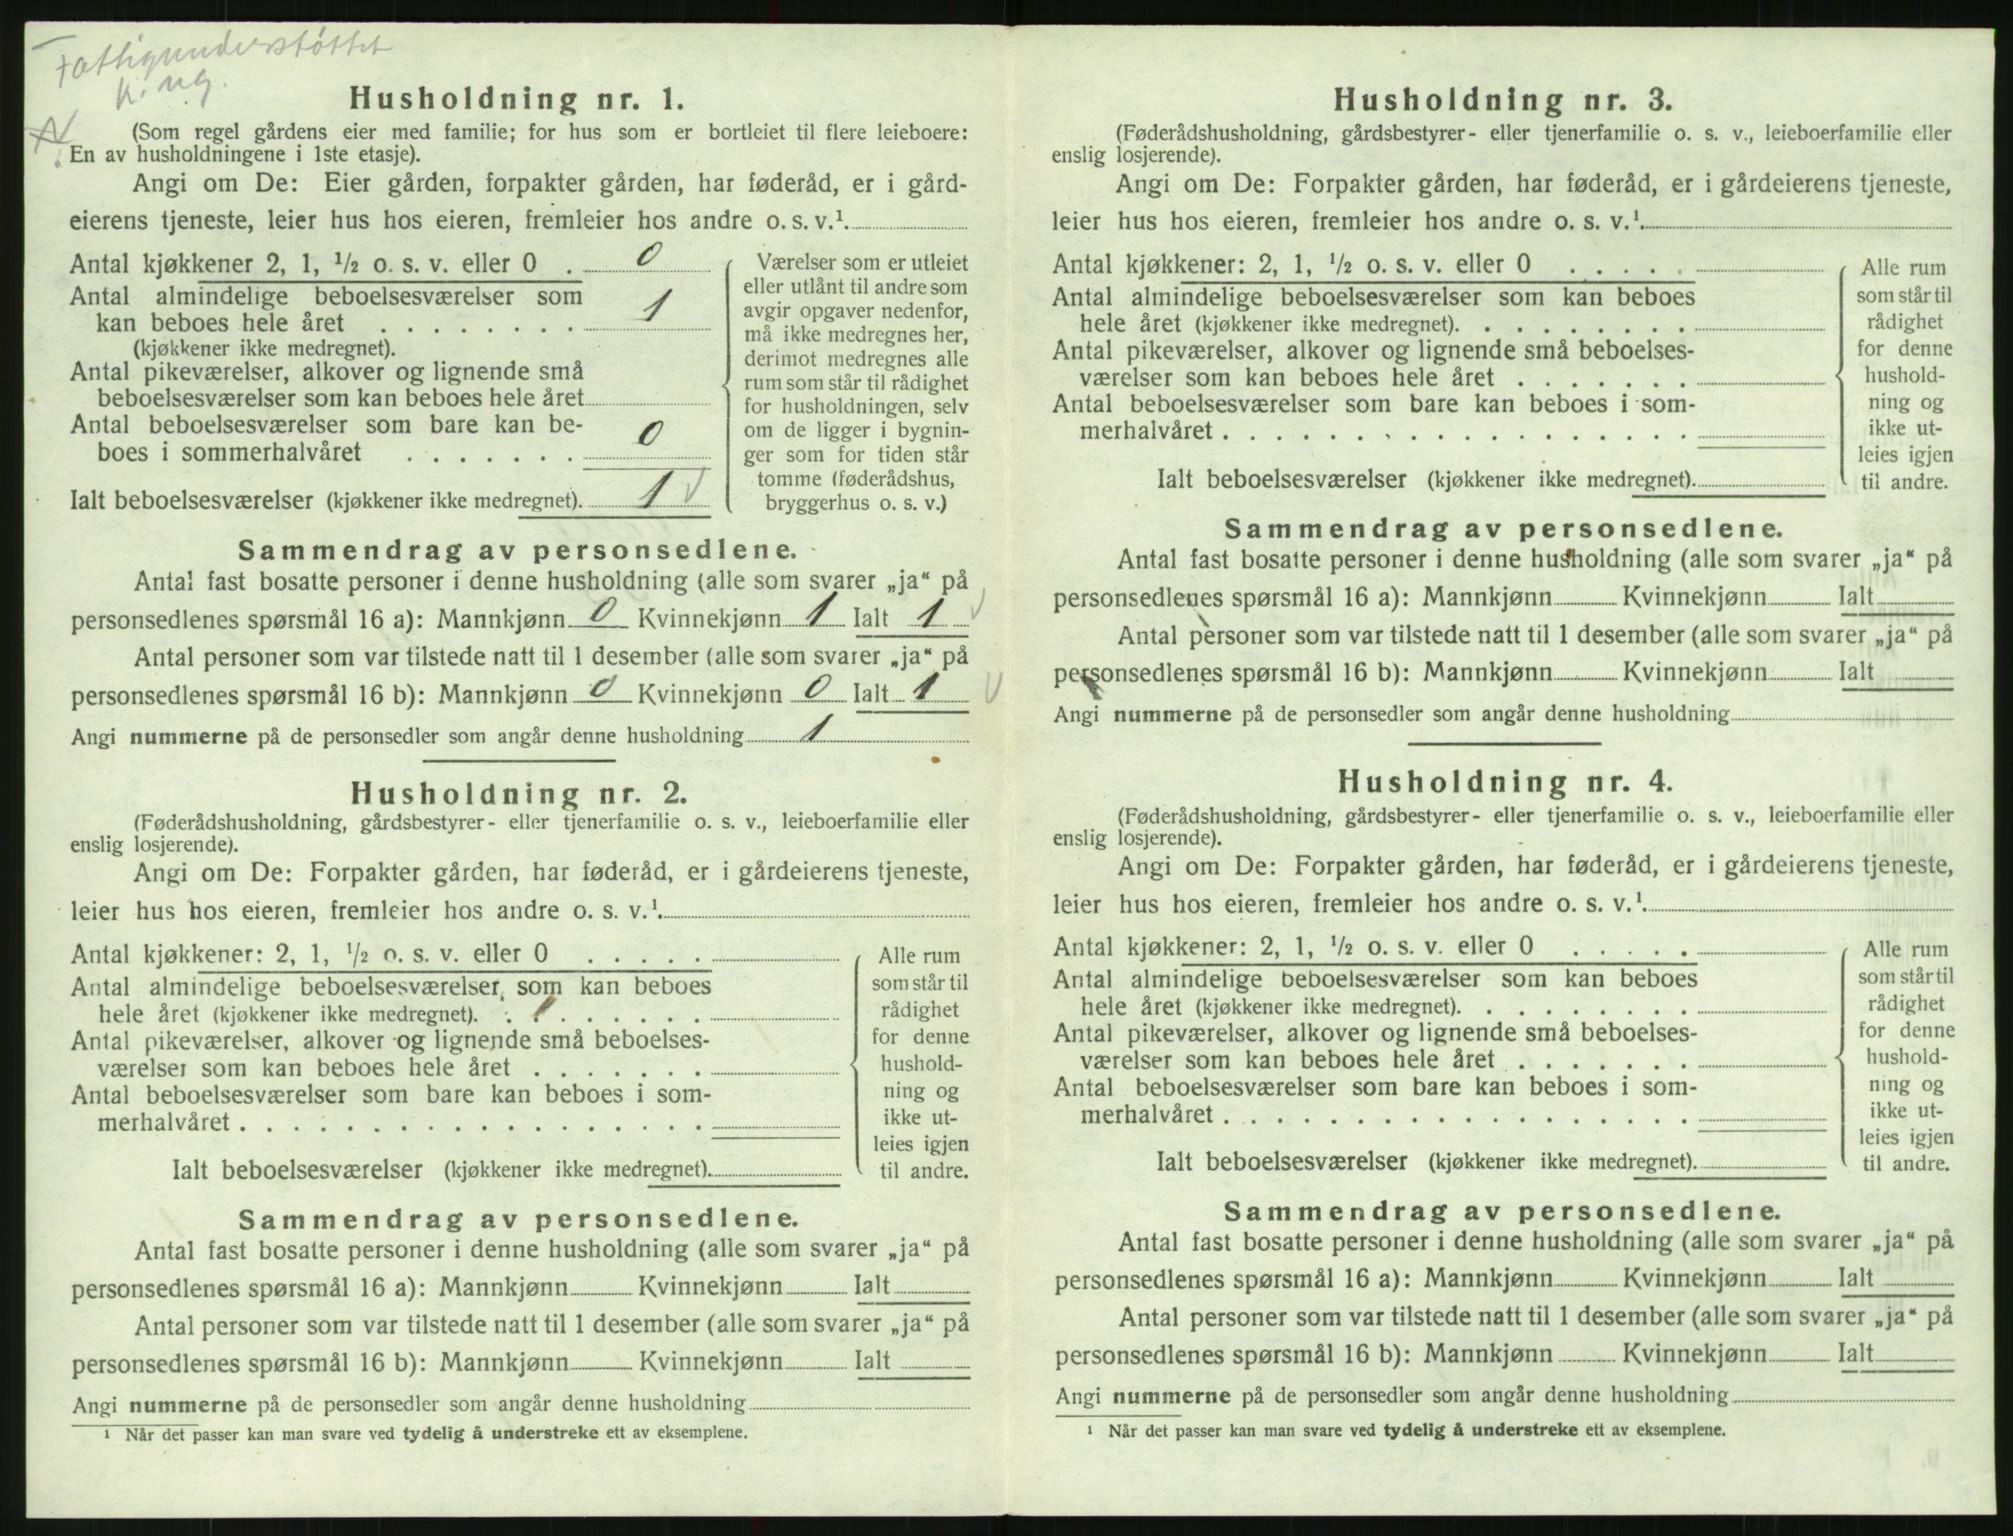 Fattigunderstøttet
k. ug.
N
Husholdning nr. 1.
(Som regel gårdens eier med familie; for hus som er bortleiet til flere leieboere:
En av husholdningene i 1ste etasje).
Angi om De: Eier gården, forpakter gården, har føderåd, er i gård-
eierens tjeneste, leier hus hos eieren, fremleier hos andre o. s. v.¹.
Antal kjøkkener 2, 1, ½ o. s. v. eller 0 . 0
Antal almindelige beboelsesværelser som
kan beboes hele året . . . . . . . . 1
(kjøkkener ikke medregnet).
Antal pikeværelser, alkover og lignende små
beboelsesværelser som kan beboes hele året
Antal beboelsesværelser som bare kan be-
boes i sommerhalvåret . . . . . . . 0
Ialt beboelsesværelser (kjøkkener ikke medregnet). 1 √
Værelser som er utleiet
eller utlånt til andre som
avgir opgaver nedenfor,
må ikke medregnes her,
derimot medregnes alle
rum som står til rådighet
for husholdningen, selv
om de ligger i bygnin-
ger som for tiden står
tomme (føderådshus,
bryggerhus o. s. v.)
Sammendrag av personsedlene.
Antal fast bosatte personer i denne husholdning (alle som svarer „ja“ på
personsedlenes spørsmål 16 a): Mannkjønn 0 Kvinnekjønn 1 Ialt 1 √
Antal personer som var tilstede natt til 1 desember (alle som svarer „ja“ på
personsedlenes spørsmål 16 b): Mannkjønn 0 Kvinnekjønn 0 Ialt 1 √
Angi nummerne på de personsedler som angår denne husholdning 1
Husholdning nr. 2.
(Føderådshusholdning, gårdsbestyrer- eller tjenerfamilie o. s. v., leieboerfamilie eller
enslig losjerende).
Angi om De: Forpakter gården, har føderåd, er i gårdeierens tjeneste,
leier hus hos eieren, fremleier hos andre o. s. v.¹.
Antal kjøkkener: 2, 1, ½ o. s. v. eller 0 . . . . .
Antal almindelige beboelsesværelser som kan beboes
hele året (kjøkkener ikke medregnet). . . . . . . . .
Antal pikeværelser, alkover og lignende små beboelses-
værelser som kan beboes hele året . . . . . . .
Antal beboelsesværelser som bare kan beboes i som-
merhalvåret . . . . . . . . . . . . . . . . . .
Ialt beboelsesværelser (kjøkkener ikke medregnet).
Alle rum
som står til
rådighet
for denne
hushold-
ning og
ikke ut-
leies igjen
til andre.
Sammendrag av personsedlene.
Antal fast bosatte personer i denne husholdning (alle som svarer „ja“ på
personsedlenes spørsmål 16 a): Mannkjønn Kvinnekjønn Ialt
Antal personer som var tilstede natt til 1 desember (alle som svarer „ja“ på
personsedlenes spørsmål 16 b): Mannkjønn Kvinnekjønn Ialt
Angi nummerne på de personsedler som angår denne husholdning
¹ Når det passer kan man svare ved tydelig å understreke ett av eksemplene.
Husholdning nr. 3.
(Føderådshusholdning, gårdsbestyrer- eller tjenerfamilie o. s. v., leieboerfamilie eller
enslig losjerende).
Angi om De: Forpakter gården, har føderåd, er i gårdeierens tjeneste,
leier hus hos eieren, fremleier hos andre o. s. v.¹.
Antal kjøkkener: 2, 1, ½ o. s. v. eller 0 . . . . .
Antal almindelige beboelsesværelser som kan beboes
hele året (kjøkkener ikke medregnet). . . . . . . . .
Antal pikeværelser, alkover og lignende små beboelses-
værelser som kan beboes hele året . . . . . . .
Antal beboelsesværelser som bare kan beboes i som-
merhalvåret . . . . . . . . . . . . . . . . . .
Ialt beboelsesværelser (kjøkkener ikke medregnet).
Alle rum
som står til
rådighet
for denne
hushold-
ning og
ikke ut-
leies igjen
til andre.
Sammendrag av personsedlene.
Antal fast bosatte personer i denne husholdning (alle som svarer „ja“ på
personsedlenes spørsmål 16 a): Mannkjønn Kvinnekjønn Ialt
Antal personer som var tilstede natt til 1 desember (alle som svarer „ja“ på
personsedlenes spørsmål 16 b): Mannkjønn Kvinnekjønn Ialt
Angi nummerne på de personsedler som angår denne husholdning
Husholdning nr. 4.
(Føderådshusholdning, gårdsbestyrer- eller tjenerfamilie o. s. v., leieboerfamilie eller
enslig losjerende).
Angi om De: Forpakter gården, har føderåd, er i gårdeierens tjeneste,
leier hus hos eieren, fremleier hos andre o. s. v.¹.
Antal kjøkkener: 2, 1, ½ o. s. v. eller 0 . . . . .
Antal almindelige beboelsesværelser som kan beboes
hele året (kjøkkener ikke medregnet). . . . . . . . .
Antal pikeværelser, alkover og lignende små beboelses-
værelser som kan beboes hele året . . . . . . .
Antal beboelsesværelser som bare kan beboes i som-
merhalvåret . . . . . . . . . . . . . . . . . .
Ialt beboelsesværelser (kjøkkener ikke medregnet).
Alle rum
som står til
rådighet
for denne
hushold-
ning og
ikke ut-
leies igjen
til andre.
Sammendrag av personsedlene.
Antal fast bosatte personer i denne husholdning (alle som svarer „ja“ på
personsedlenes spørsmål 16 a): Mannkjønn Kvinnekjønn Ialt
Antal personer som var tilstede natt til 1 desember (alle som svarer „ja“ på
personsedlenes spørsmål 16 b): Mannkjønn Kvinnekjønn Ialt
Angi nummerne på de personsedler som angår denne husholdning
¹ Når det passer kan man svare ved tydelig å understreke ett av eksemplene.